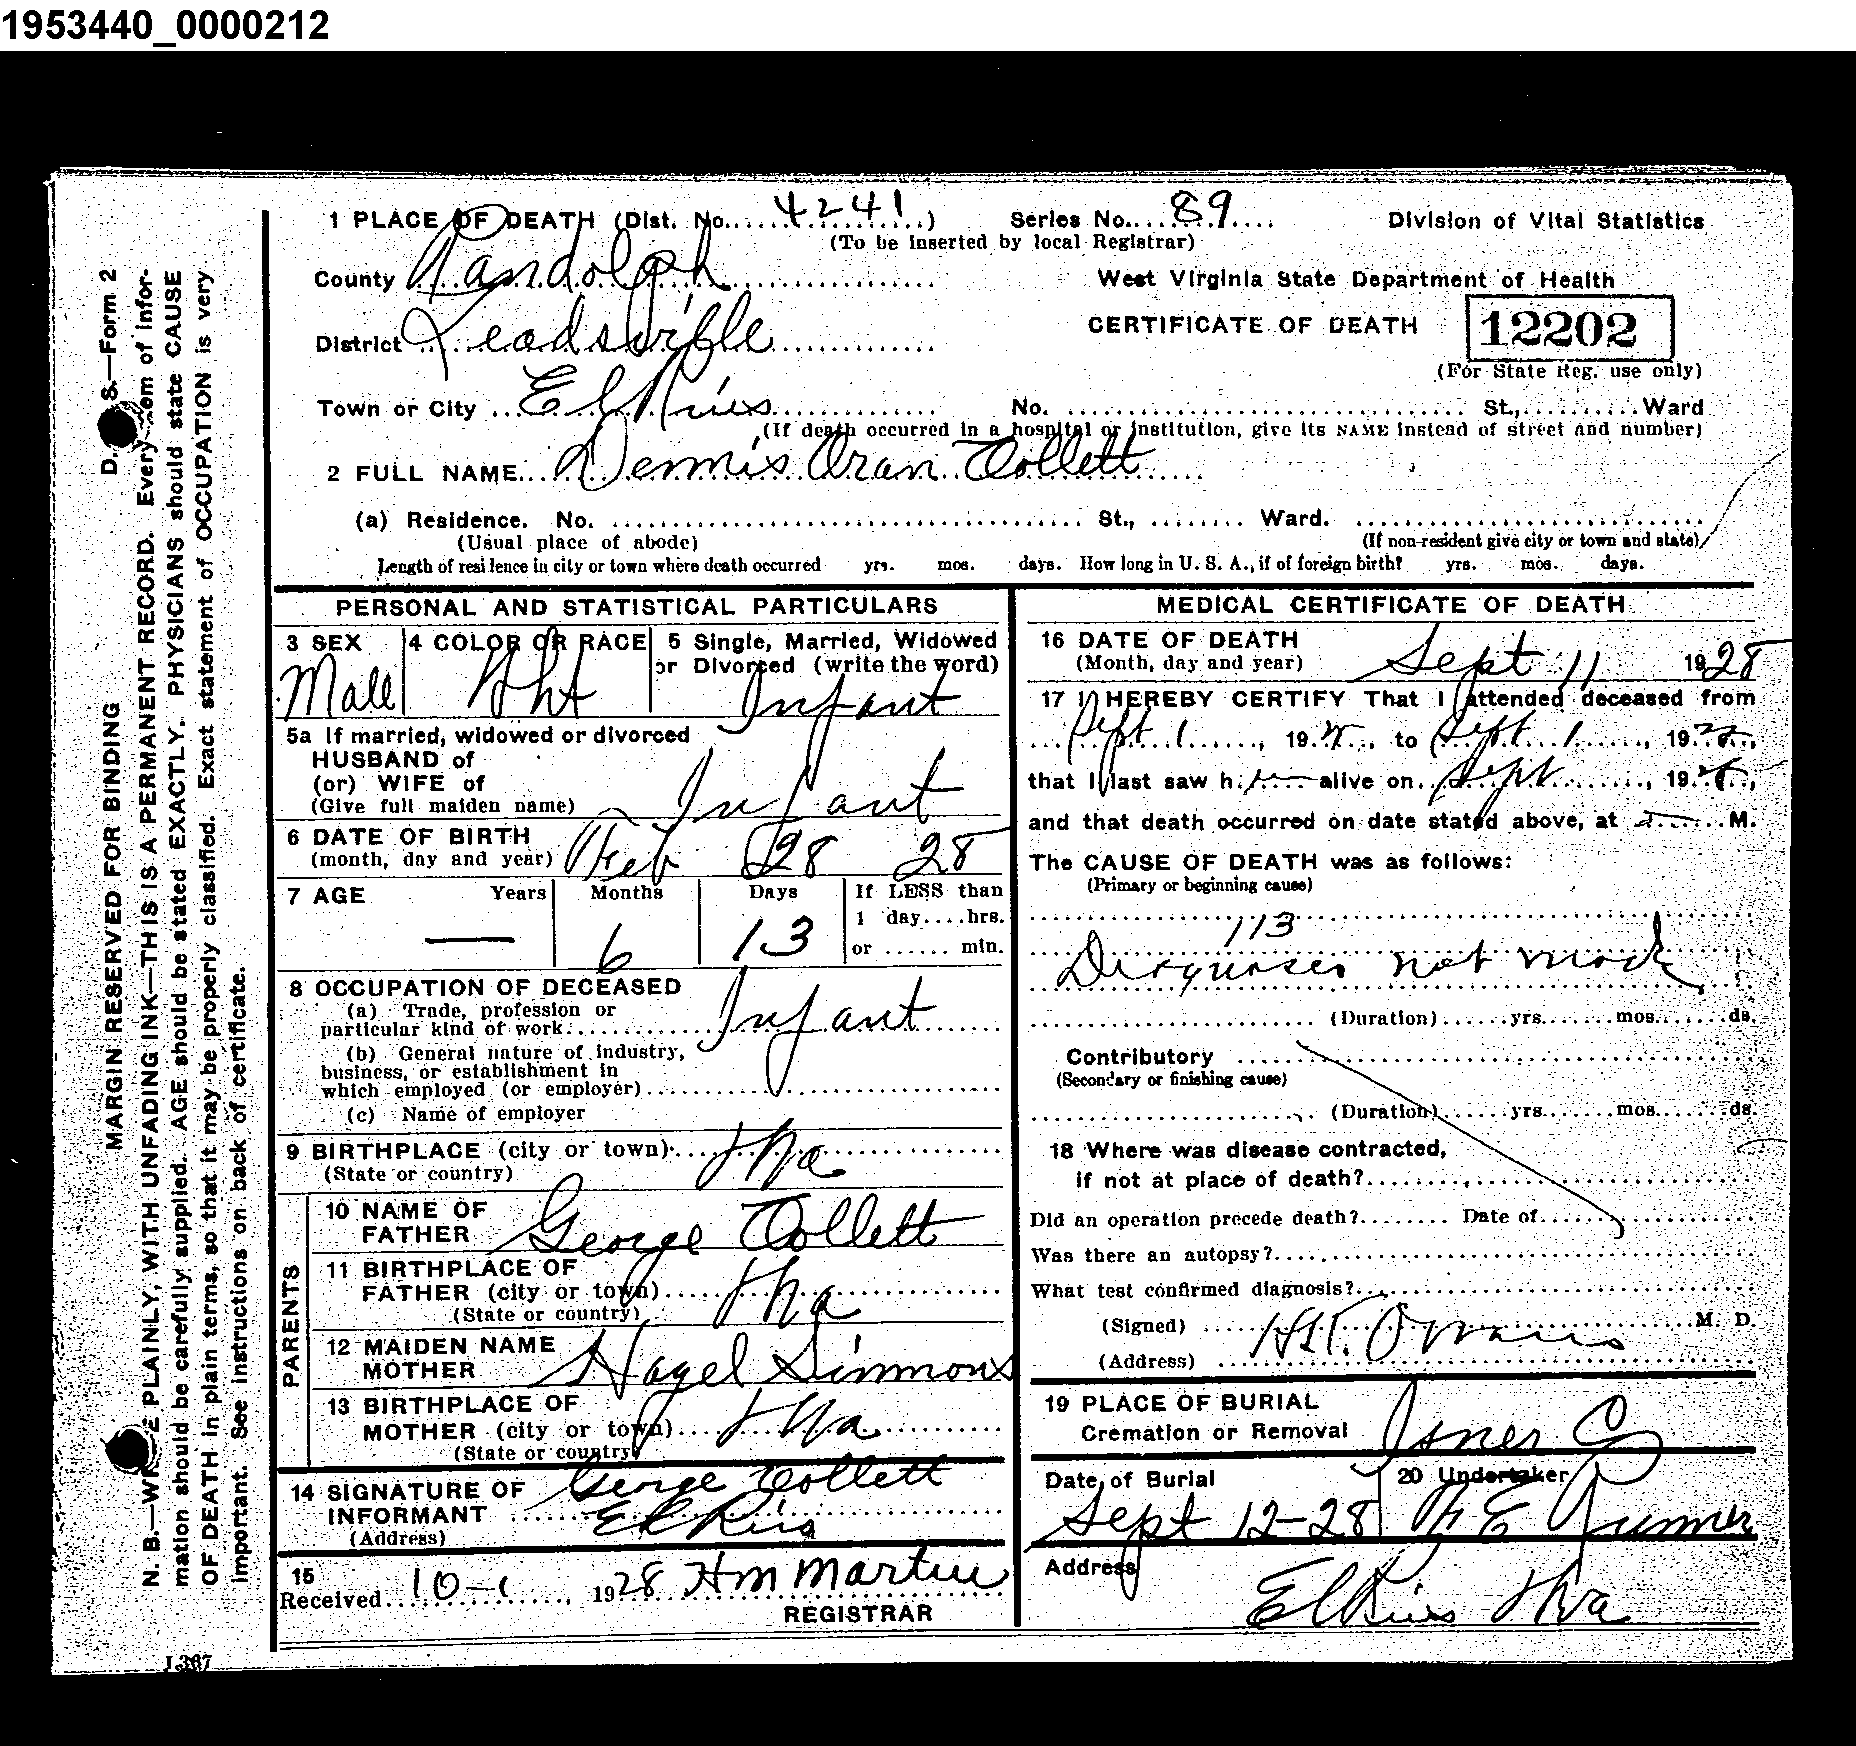 1953440_0000212
1 PLACE OF DEATH (Dist. No. 4241) Series No. 89 Division of Vital Statistics
(To be inserted by local Registrar)
County Randolph West Virginia State Department of Health
District Leadsville CERTIFICATE OF DEATH 12202
(For State Reg. use only)
Town or City Elkins No. St., Ward
(If death occurred in a hospital or institution, give its NAME instead of street and number)
2 FULL NAME Dennis Oran Collett
(a) Residence. No. St., Ward.
(Usual place of abode) (If non-resident give city or town and state)
Length of residence in city or town where death occurred yrs. mos. days. How long in U. S. A., if of foreign birth? yrs. mos. days.
PERSONAL AND STATISTICAL PARTICULARS
3 SEX 4 COLOR OR RACE 5 Single, Married, Widowed
or Divorced (write the word)
Male Wht Infant
5a If married, widowed or divorced
HUSBAND of
(or) WIFE of
(Give full maiden name) Infant
6 DATE OF BIRTH
(month, day and year) Feb 28 28
7 AGE Years Months Days If LESS than
1 day....hrs.
— 6 13 or ...... min.
8 OCCUPATION OF DECEASED
(a) Trade, profession or
particular kind of work Infant
(b) General nature of industry,
business, or establishment in
which employed (or employer)
(c) Name of employer
9 BIRTHPLACE (city or town)
(State or country) WVa
PARENTS
10 NAME OF
FATHER George Collett
11 BIRTHPLACE OF
FATHER (city or town) WVa
(State or country)
12 MAIDEN NAME
MOTHER Hazel Simmons
13 BIRTHPLACE OF
MOTHER (city or town) WVa
(State or country)
14 SIGNATURE OF George Collett
INFORMANT Elkins
(Address)
15
Received 10-1, 1928 HM Martin
REGISTRAR
MEDICAL CERTIFICATE OF DEATH
16 DATE OF DEATH
(Month, day and year) Sept 11 1928
17 I HEREBY CERTIFY That I attended deceased from
Sept 1, 19 to Sept 1, 19
that I last saw h alive on Sept, 19
and that death occurred on date stated above, at M.
The CAUSE OF DEATH was as follows:
(Primary or beginning cause)
113
Diagnoses not made
(Duration) yrs. mos. ds.
Contributory
(Secondary or finishing cause)
(Duration) yrs. mos. ds.
18 Where was disease contracted,
if not at place of death?
Did an operation precede death? Date of
Was there an autopsy?
What test confirmed diagnosis?
(Signed) M. D.
(Address)
19 PLACE OF BURIAL
Cremation or Removal Isner
Date of Burial 20 Undertaker
Sept 12-28 F E Runner
Address
Elkins WVa
D. S.—Form 2
MARGIN RESERVED FOR BINDING
N. B.—WRITE PLAINLY, WITH UNFADING INK—THIS IS A PERMANENT RECORD. Every item of infor-
mation should be carefully supplied. AGE should be stated EXACTLY. PHYSICIANS should state CAUSE
OF DEATH in plain terms, so that it may be properly classified. Exact statement of OCCUPATION is very
important. See instructions on back of certificate.
L367